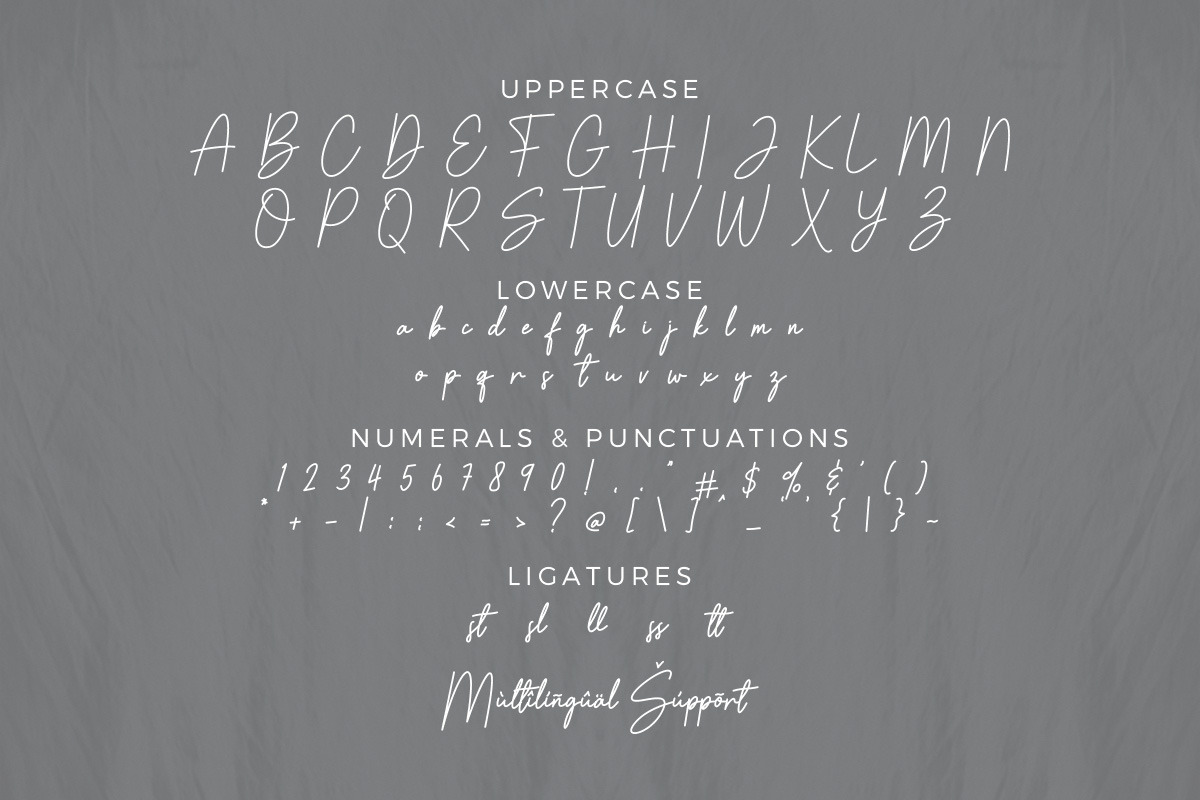 UPPERCASE
A B C D E F G H I J K L M N
O P Q R S T U V W X Y Z
LOWERCASE
a b c d e f g h i j k l m n
o p q r s t u v w x y z
NUMERALS & PUNCTUATIONS
1 2 3 4 5 6 7 8 9 0 ! . . " # $ % & ' ( )
* + - / : ; < = > ? @ [ \ ] ^ _ ' ' { | } ~
LIGATURES
st sl ll ss tt
Mùltîlíñgûäl Šúppõrt